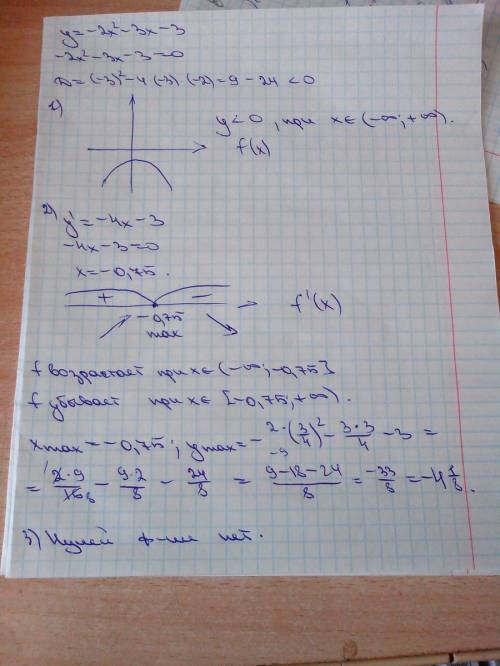 y=-2x²-3x-3
-2x²-3x-3=0
D=(-3)²-4·(-3)·(-2)=9-24<0
1)
y<0, при x∈(-∞;+∞).
f(x)
2) y'=-4x-3
-4x-3=0
x=-0,75.
+ -
-0,75
max
f'(x)
f возрастает при x∈(-∞;-0,75]
f убывает при x∈[-0,75;+∞).
xmax=-0,75; ymax=-2·(3/4)²-3·3/4-3=
-9
=2·9/16 8-9·2/8-24/8=9-18-24/8=-33/8=-4 1/8.
3) Нулей ф-ии нет.